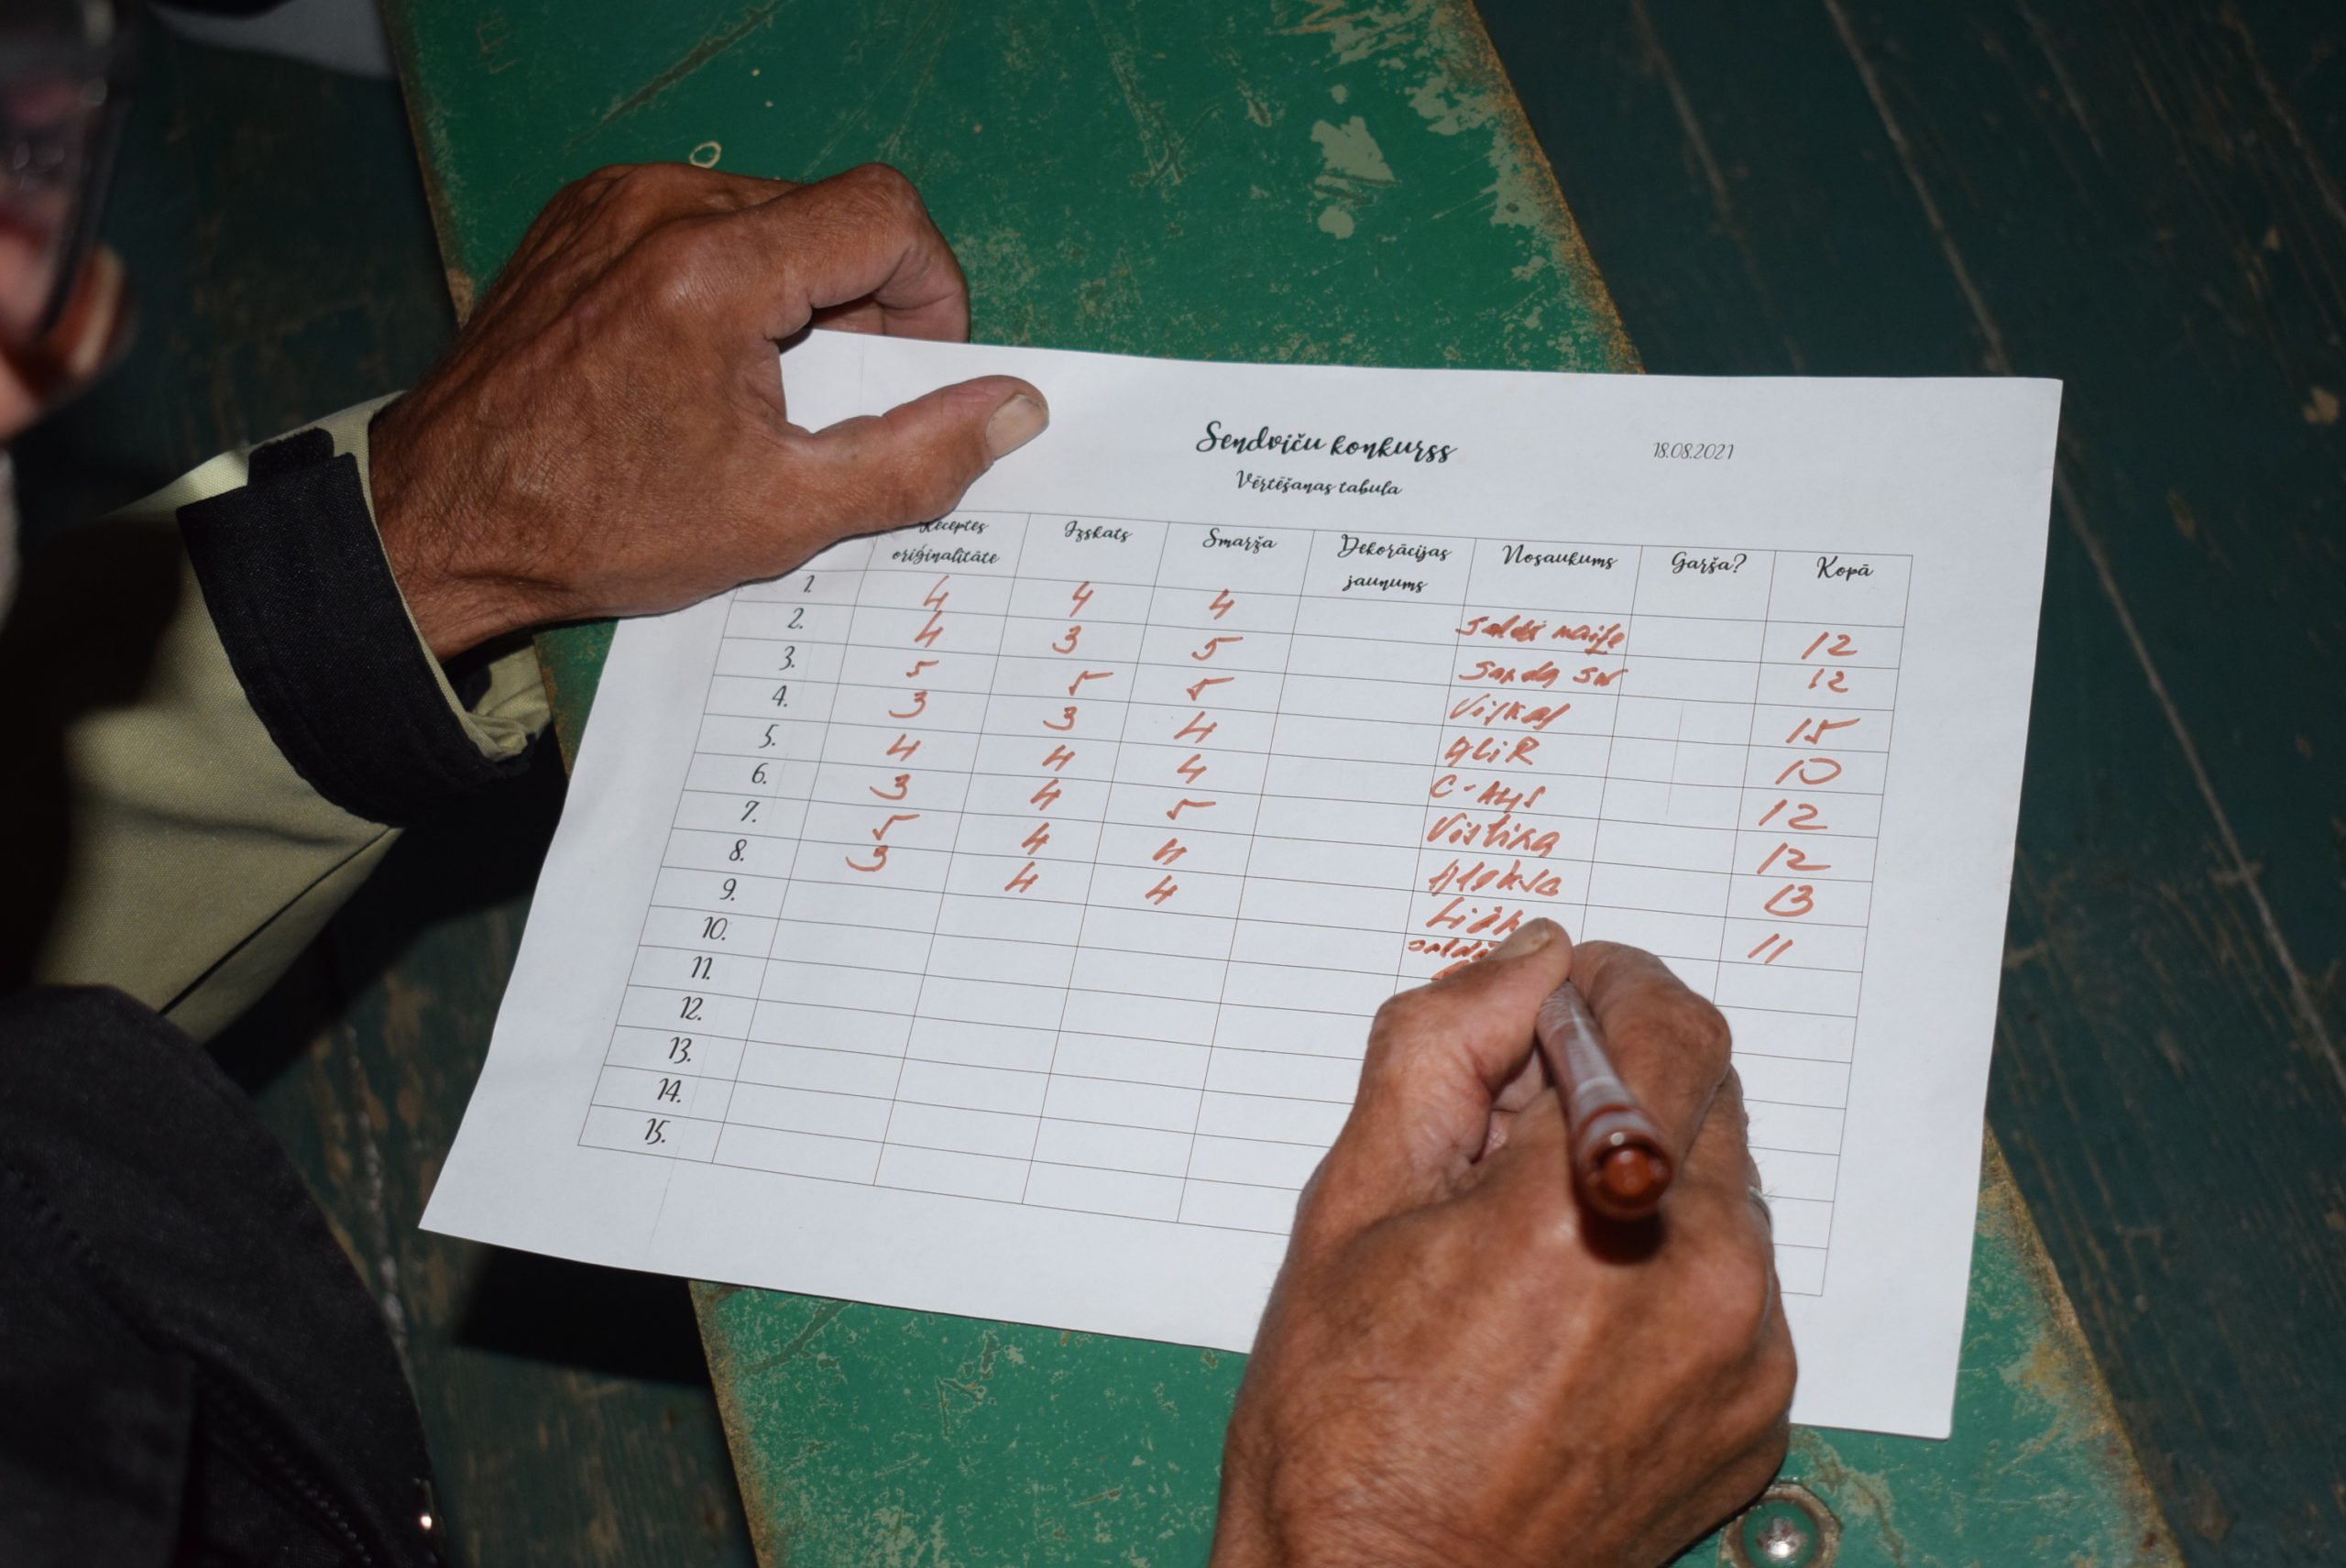 Sendviču konkurss 18.08.2021
Vērtēšanas tabula
Receptes oriģinalitāte Izskats Smarža Dekorācijas jaunums Nosaukums Garša? Kopā
1. 4 4 4 12
2. 4 3 5 12
3. 5 5 5 15
4. 3 3 4 ALIR 10
5. 4 4 4 12
6. 3 4 5 Vistiņa 12
7. 5 4 4 13
8. 3 4 4 11
9.
10.
11.
12.
13.
14.
15.